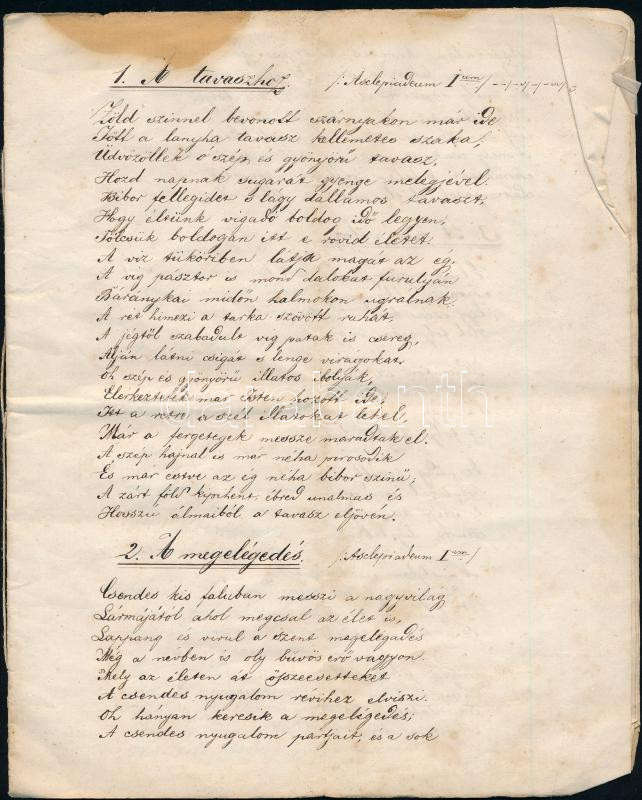 1. A tavaszhoz. /: Asclepiadeum I um /
Zöld szinnel bevonott szárnyakon már ide
Jött a lanyha tavasz kellemetes szaka,
Üdvözöllek ó szép és gyönyörű tavasz,
Hozd napnak sugarát gyenge melegjével.
Bibor fellegidet s lágy dallamos tavaszt,
Hogy éltünk vigadó boldog idő legyen,
Töltsük boldogan itt e rövid életet.
A viz tüköriben látja magát az ég.
A vig pásztor is mond dalokat furulyán
Báránykái midőn halmokon ugrálnak.
A rét himezi a tarka szövött ruhát.
A jégtől szabadult vig patak is csereg,
Alján látni csigát s lenge virágokat.
Oh szép és gyönyörű illatos ibolyák,
Elérkeztetek már isten hozott ide;
Itt a rétre a szél illatokat lehel,
Már a fergetegek messze maradtak el.
A szép hajnal is már néha pirosodik
És már estve az ég néha bibor szinű;
A zárt föld kipihent, ébred unalmas és
Hosszú álmaiból a tavasz eljövén.
2. A megelégedés. /: Asclepiadeum I um /
Csendes kis faluban messzi a nagyvilág
Lármájától ahol megcsal az élet is,
Lappang és virul a szent megelégedés
Még a névben is oly bűvös erő vagyon.
Mely az életen át összeesetteket
A csendes nyugalom révihez elviszi.
Oh hányan keresik a megelégedés;
A csendes nyugalom partjait, és a sok